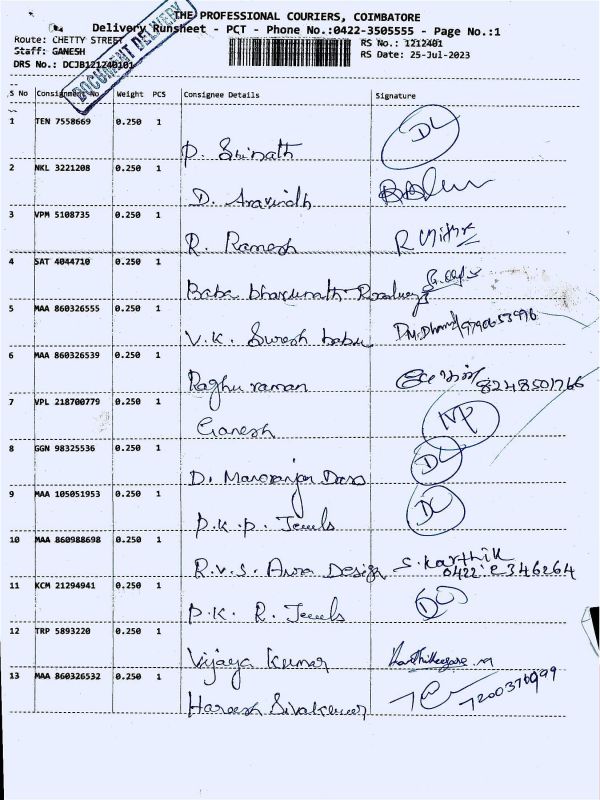 THE PROFESSIONAL COURIERS, COIMBATORE
Delivery Runsheet - PCT - Phone No.:0422-3505555 - Page No.:1
Route: CHETTY STREET
RS No.: 1212401
Staff: GANESH
RS Date: 25-Jul-2023
DRS No.: DCJB121240101
DOCUMENT DELIVERY
S No Consignment No Weight PCS Consignee Details Signature
1 TEN 7558669 0.250 1 P. Srinath DL
2 NKL 3221208 0.250 1 D. Aravindh
3 VPM 5108735 0.250 1 R. Ramesh
4 SAT 4044710 0.250 1 Baba
5 MAA 860326555 0.250 1 V.K. Suresh babu
6 MAA 860326539 0.250 1 Raghu raman 8248501766
7 VPL 218700779 0.250 1 Ganesh NP
8 GGN 98325536 0.250 1 D. Manoranjan Dass DL
9 MAA 105051953 0.250 1 P.K.P. Jewels DL
10 MAA 860988698 0.250 1 R.V.S. Design S. Karthik
0422:2346264
11 KCM 21294941 0.250 1 P.K. R. Jewels
12 TRP 5893220 0.250 1 Vijaya Kumar
13 MAA 860326532 0.250 1 Hareesh Sivakumar